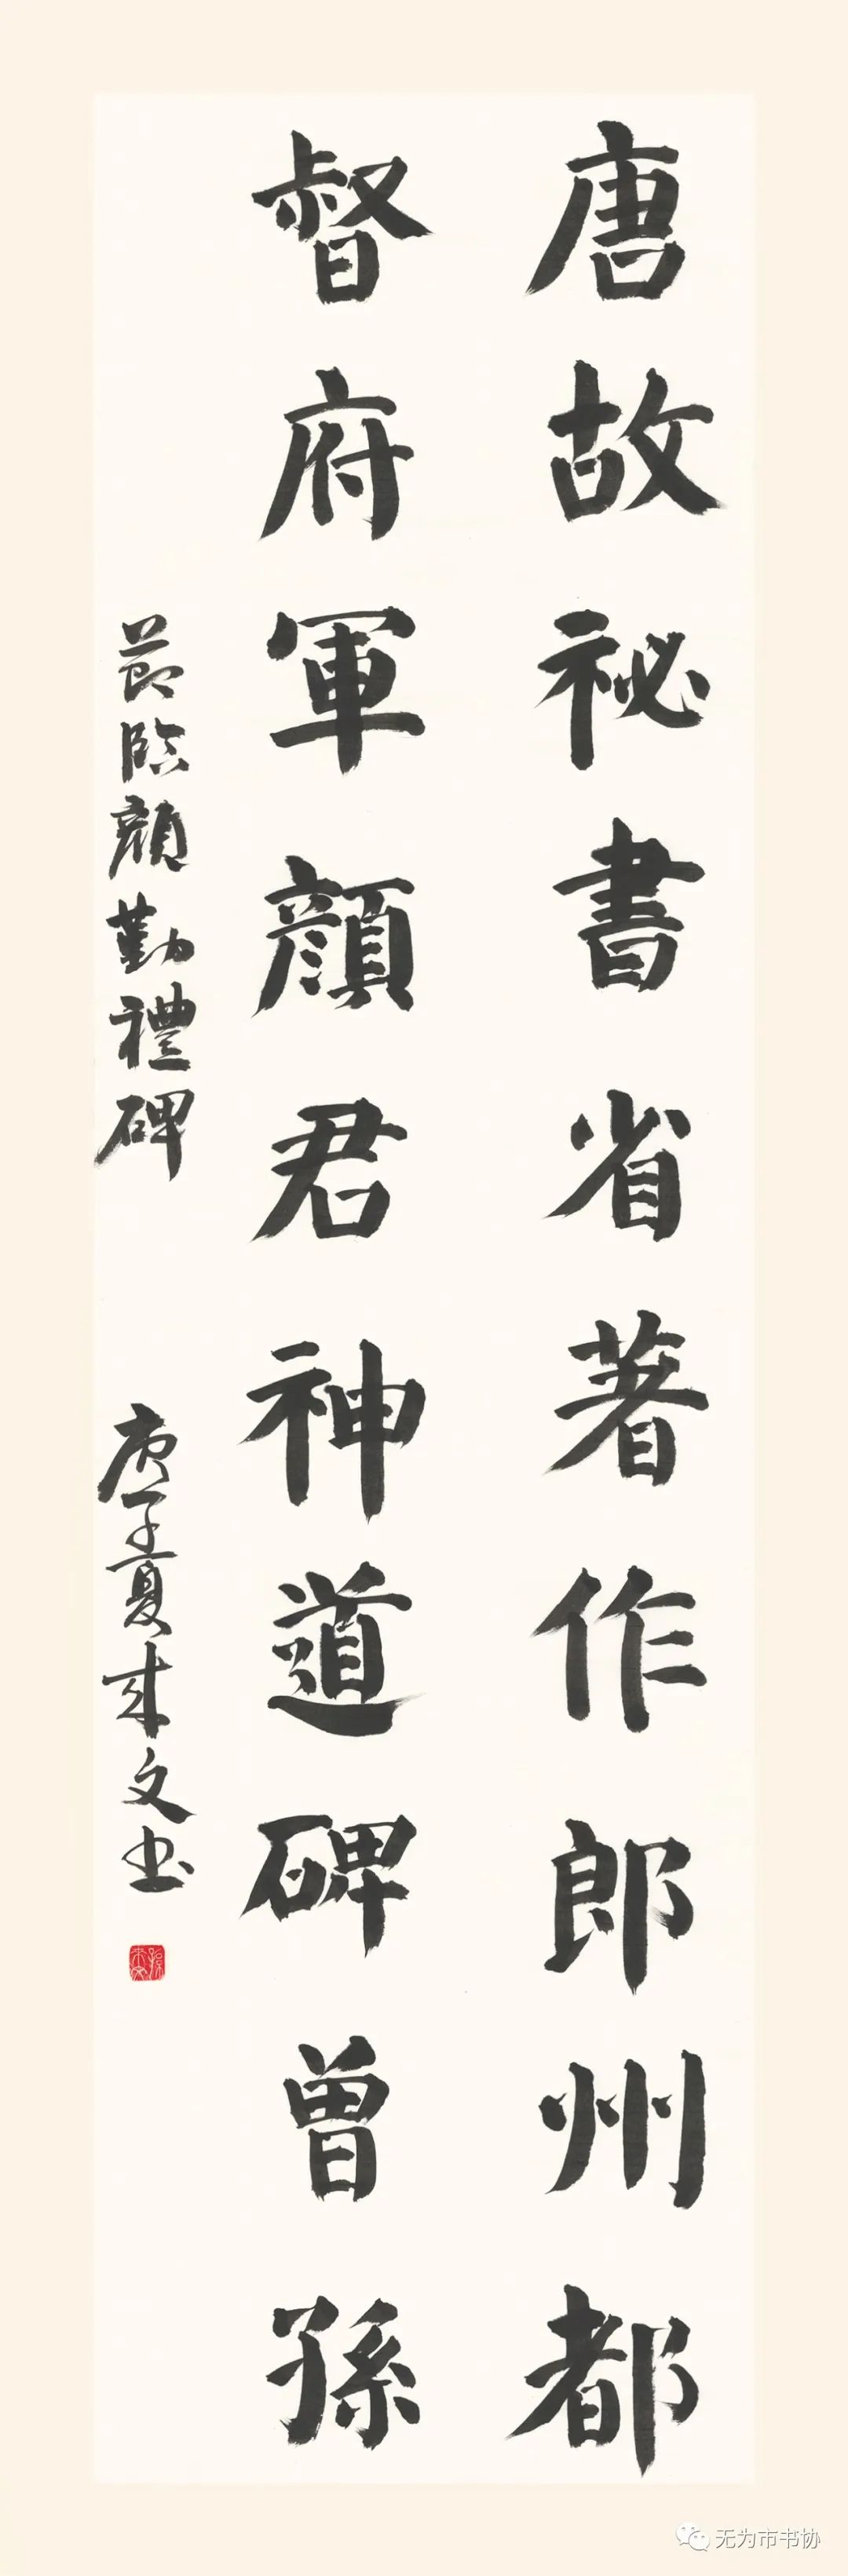 唐故祕書省著作郎州都
督府軍顏君神道碑曾孫
節臨顏勤禮碑
庚子夏来文书
无为市书协